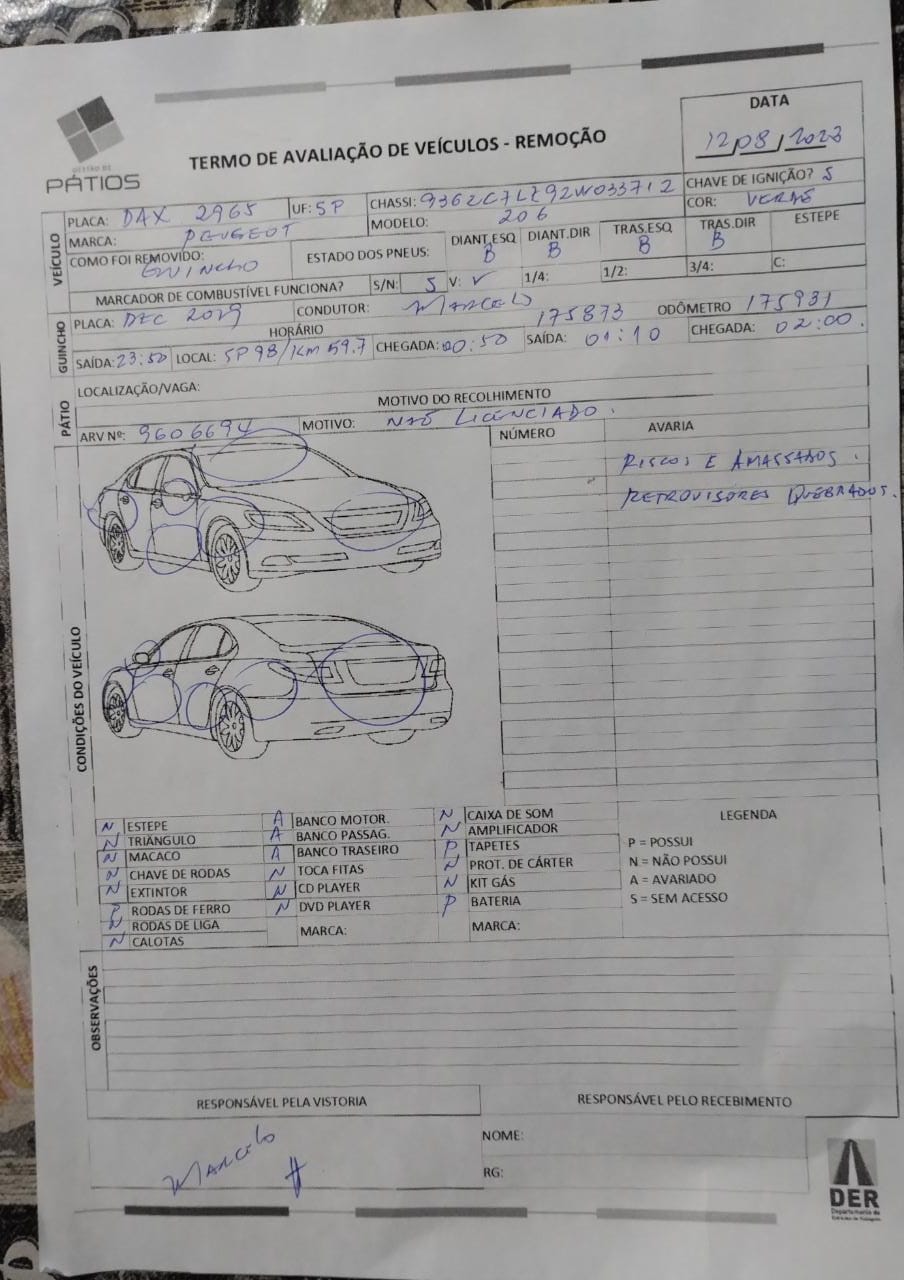 DATA
12/08/2023
GESTÃO DE
PÁTIOS
TERMO DE AVALIAÇÃO DE VEÍCULOS - REMOÇÃO
CHAVE DE IGNIÇÃO? S
VEÍCULO
PLACA: DAX 2965 UF: SP CHASSI: 9362C7LZ92W033712 COR: VERDE
MARCA: PEUGEOT MODELO: 206
COMO FOI REMOVIDO: GUINCHO ESTADO DOS PNEUS: DIANT.ESQ B DIANT.DIR B TRAS.ESQ B TRAS.DIR B ESTEPE
MARCADOR DE COMBUSTÍVEL FUNCIONA? S/N: S V: V 1/4: 1/2: 3/4: C:
GUINCHO
PLACA: DEC 2019 CONDUTOR: MARCELO 175873 ODÔMETRO 175931
HORÁRIO
SAÍDA: 23:50 LOCAL: SP 98/KM 59.7 CHEGADA: 00:50 SAÍDA: 01:10 CHEGADA: 02:00.
PÁTIO
LOCALIZAÇÃO/VAGA:
MOTIVO DO RECOLHIMENTO
ARV Nº: 9606694 MOTIVO: NÃO LICENCIADO.
CONDIÇÕES DO VEÍCULO
NÚMERO AVARIA
RISCOS E AMASSADOS.
RETROVISORES QUEBRADOS.
N ESTEPE A BANCO MOTOR. N CAIXA DE SOM
N TRIÂNGULO A BANCO PASSAG. N AMPLIFICADOR
N MACACO A BANCO TRASEIRO P TAPETES
N CHAVE DE RODAS N TOCA FITAS N PROT. DE CÁRTER
N EXTINTOR N CD PLAYER N KIT GÁS
P RODAS DE FERRO N DVD PLAYER P BATERIA
N RODAS DE LIGA MARCA: MARCA:
N CALOTAS
LEGENDA
P = POSSUI
N = NÃO POSSUI
A = AVARIADO
S = SEM ACESSO
OBSERVAÇÕES
RESPONSÁVEL PELA VISTORIA RESPONSÁVEL PELO RECEBIMENTO
MARCELO
NOME:
RG:
DER
Departamento de